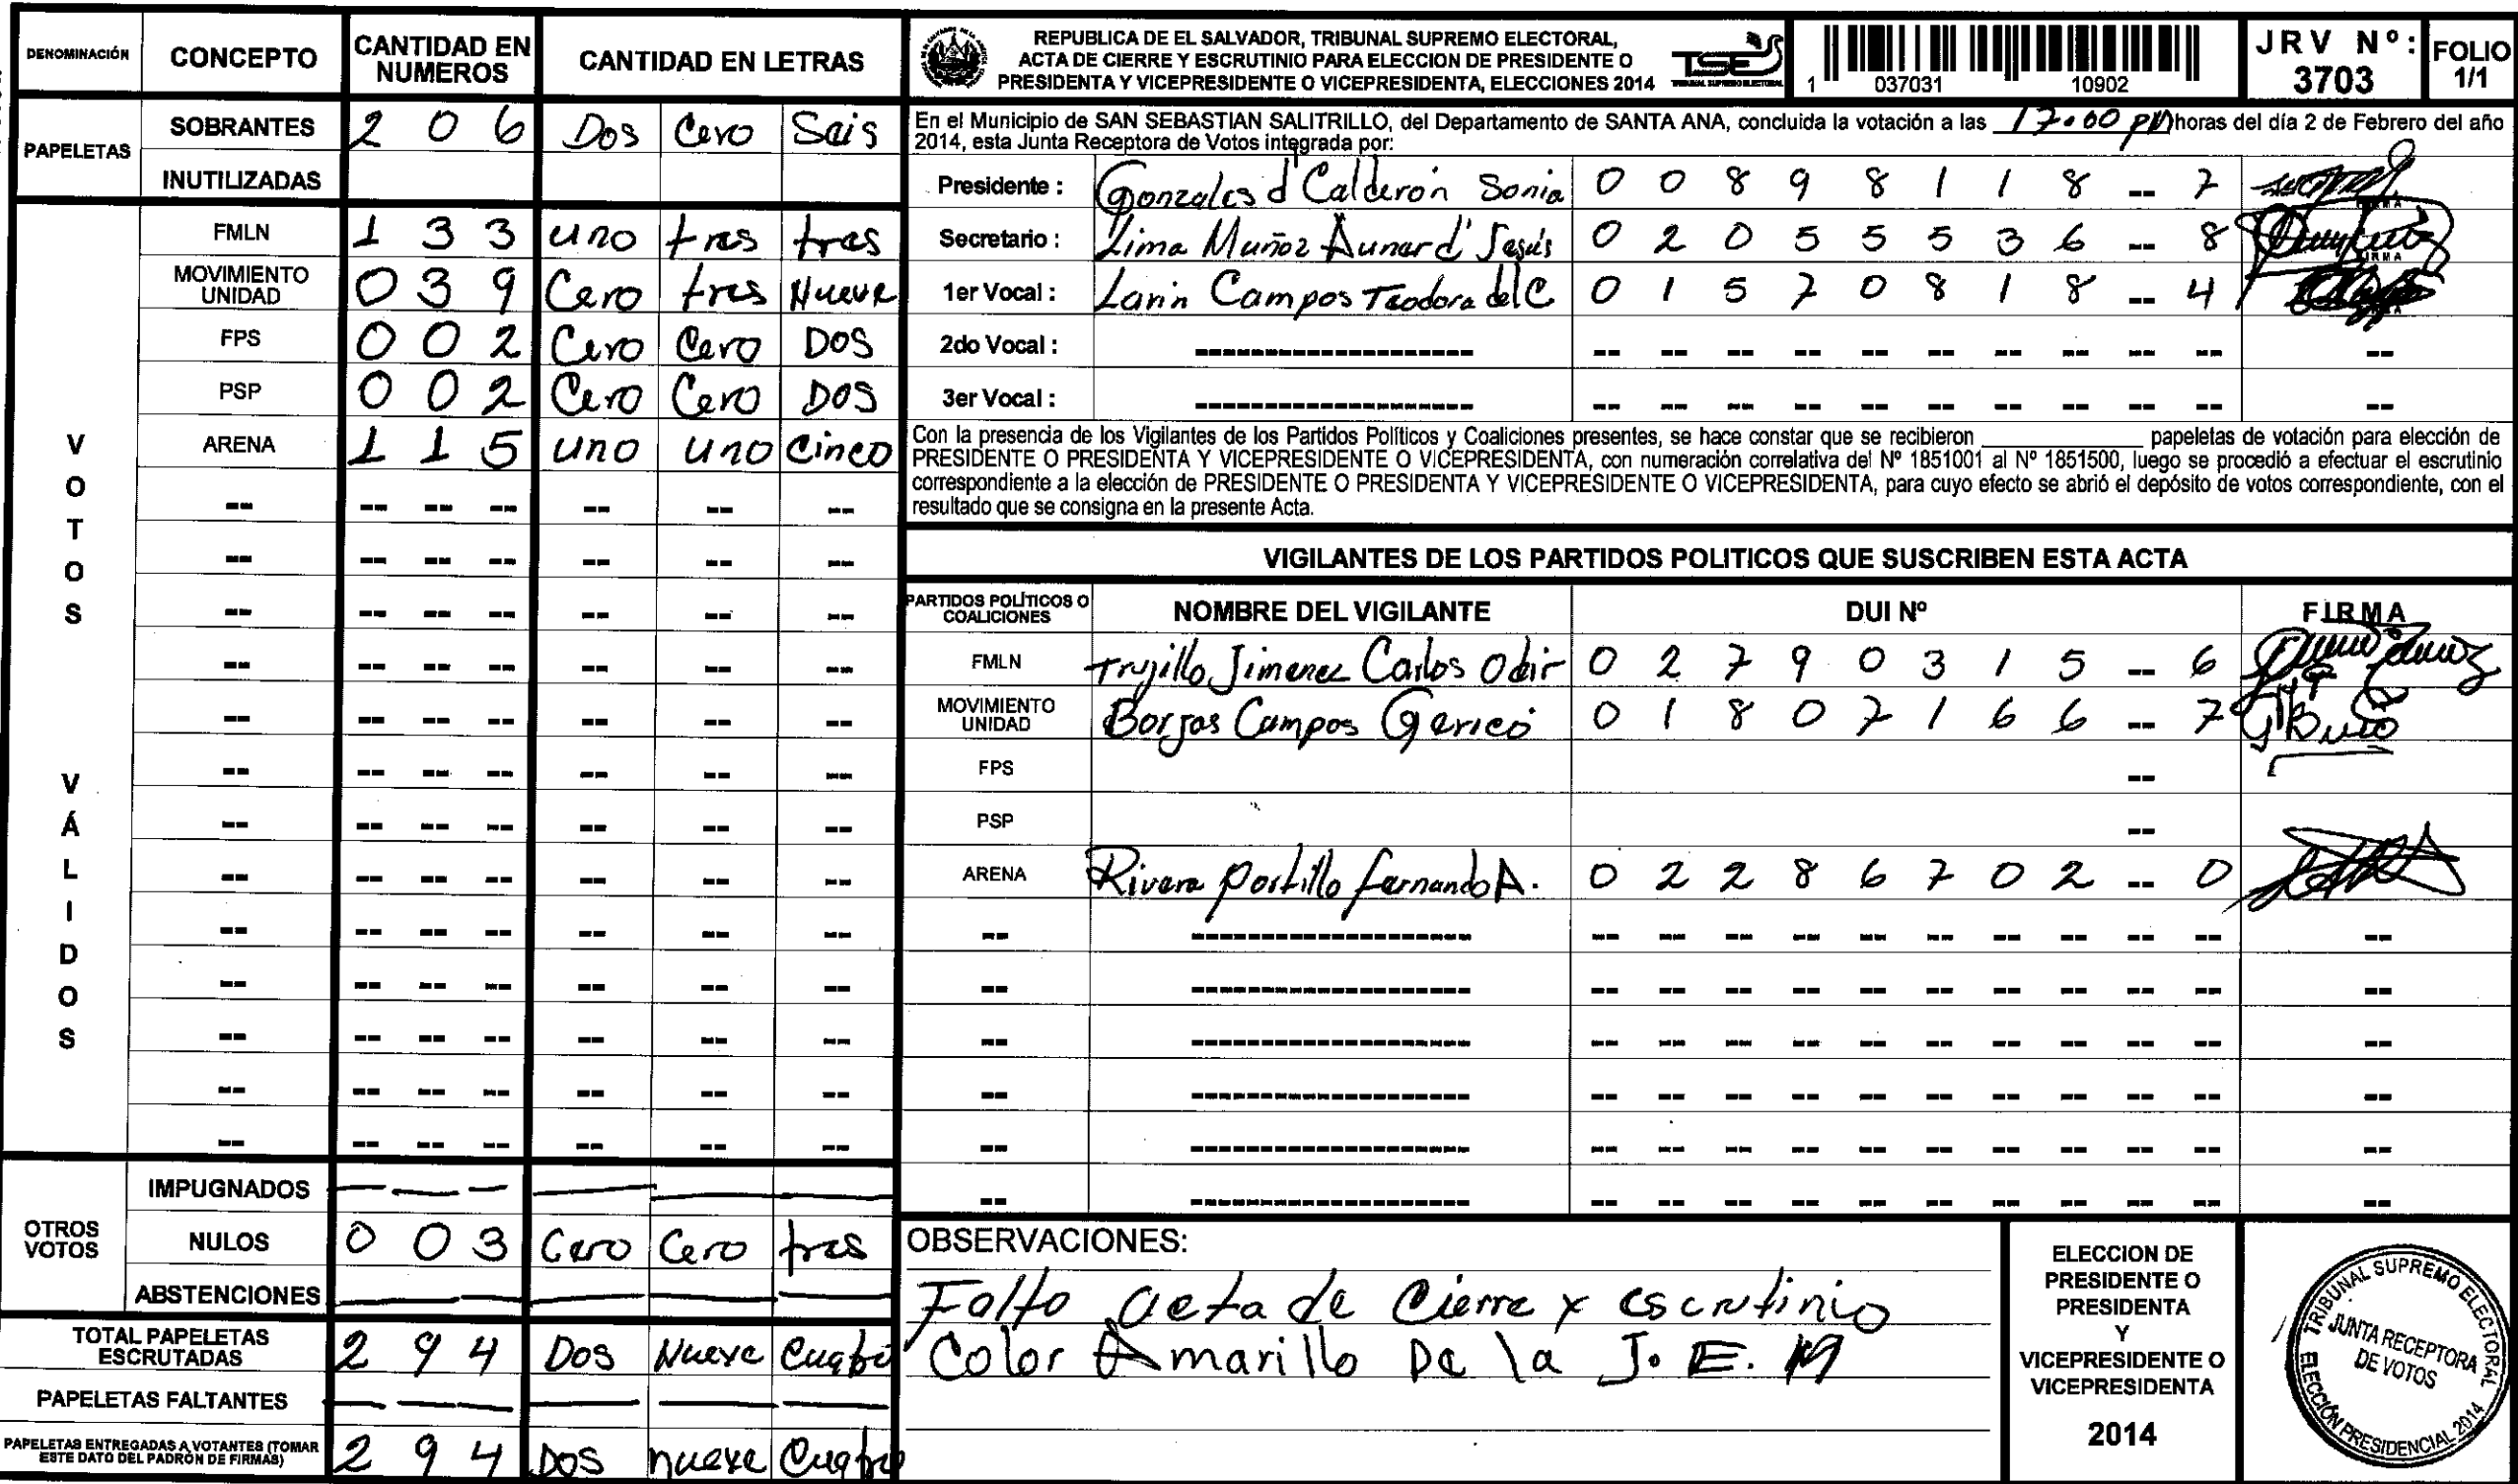 DENOMINACIÓN CONCEPTO CANTIDAD EN NUMEROS CANTIDAD EN LETRAS
PAPELETAS
SOBRANTES 2 0 6 Dos Cero Sais
INUTILIZADAS
VOTOS VÁLIDOS
FMLN 1 3 3 uno tres tres
MOVIMIENTO UNIDAD 0 3 9 Cero tres Nueve
FPS 0 0 2 Cero Cero DOS
PSP 0 0 2 Cero Cero DOS
ARENA 1 1 5 uno uno Cinco
OTROS VOTOS
IMPUGNADOS
NULOS 0 0 3 Cero Cero tres
ABSTENCIONES
TOTAL PAPELETAS ESCRUTADAS 2 9 4 Dos Nueve Cuatro
PAPELETAS FALTANTES
PAPELETAS ENTREGADAS A VOTANTES (TOMAR ESTE DATO DEL PADRÓN DE FIRMAS) 2 9 4 Dos nueve Cuatro
REPUBLICA DE EL SALVADOR, TRIBUNAL SUPREMO ELECTORAL,
ACTA DE CIERRE Y ESCRUTINIO PARA ELECCION DE PRESIDENTE O
PRESIDENTA Y VICEPRESIDENTE O VICEPRESIDENTA, ELECCIONES 2014
TSE
TRIBUNAL SUPREMO ELECTORAL
1 037031 10902
JRV Nº: 3703
FOLIO 1/1
En el Municipio de SAN SEBASTIAN SALITRILLO, del Departamento de SANTA ANA, concluida la votación a las 17:00 PM horas del día 2 de Febrero del año
2014, esta Junta Receptora de Votos integrada por:
Presidente : Gonzales d' Calderón Sonia 0 0 8 9 8 1 1 8 -- 7
Secretario : Lima Muñoz Aunar d' Jesús 0 2 0 5 5 5 3 6 -- 8
1er Vocal : Larin Campos Teodora del C 0 1 5 7 0 8 1 8 -- 4
2do Vocal :
3er Vocal :
Con la presencia de los Vigilantes de los Partidos Políticos y Coaliciones presentes, se hace constar que se recibieron ________ papeletas de votación para elección de
PRESIDENTE O PRESIDENTA Y VICEPRESIDENTE O VICEPRESIDENTA, con numeración correlativa del Nº 1851001 al Nº 1851500, luego se procedió a efectuar el escrutinio
correspondiente a la elección de PRESIDENTE O PRESIDENTA Y VICEPRESIDENTE O VICEPRESIDENTA, para cuyo efecto se abrió el depósito de votos correspondiente, con el
resultado que se consigna en la presente Acta.
VIGILANTES DE LOS PARTIDOS POLITICOS QUE SUSCRIBEN ESTA ACTA
PARTIDOS POLÍTICOS O COALICIONES NOMBRE DEL VIGILANTE DUI Nº FIRMA
FMLN Trujillo Jimenez Carlos Odir 0 2 7 9 0 3 1 5 -- 6
MOVIMIENTO UNIDAD Borjas Campos Gericó 0 1 8 0 7 1 6 6 -- 7
FPS --
PSP --
ARENA Rivera Portillo fernando A. 0 2 2 8 6 7 0 2 -- 0
OBSERVACIONES:
Falto acta de Cierre y escrutinio
Color Amarillo De la J. E. M
ELECCION DE
PRESIDENTE O
PRESIDENTA
Y
VICEPRESIDENTE O
VICEPRESIDENTA
2014
TRIBUNAL SUPREMO ELECTORAL
JUNTA RECEPTORA
DE VOTOS
ELECCIÓN PRESIDENCIAL 2014